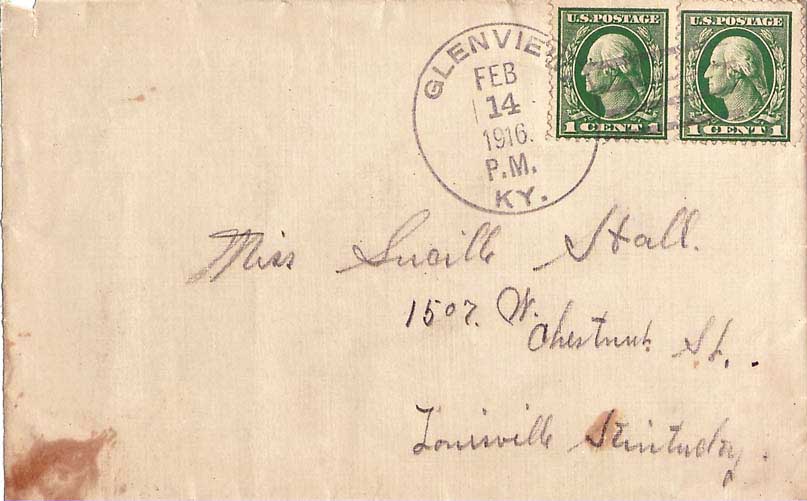 U.S. POSTAGE
1 CENT 1
U.S. POSTAGE
1 CENT 1
GLENVIEW
FEB
14
1916.
P.M.
KY.
Miss Lucille Hall.
1507. W.
Chestnut St.
Louisville Kentucky.